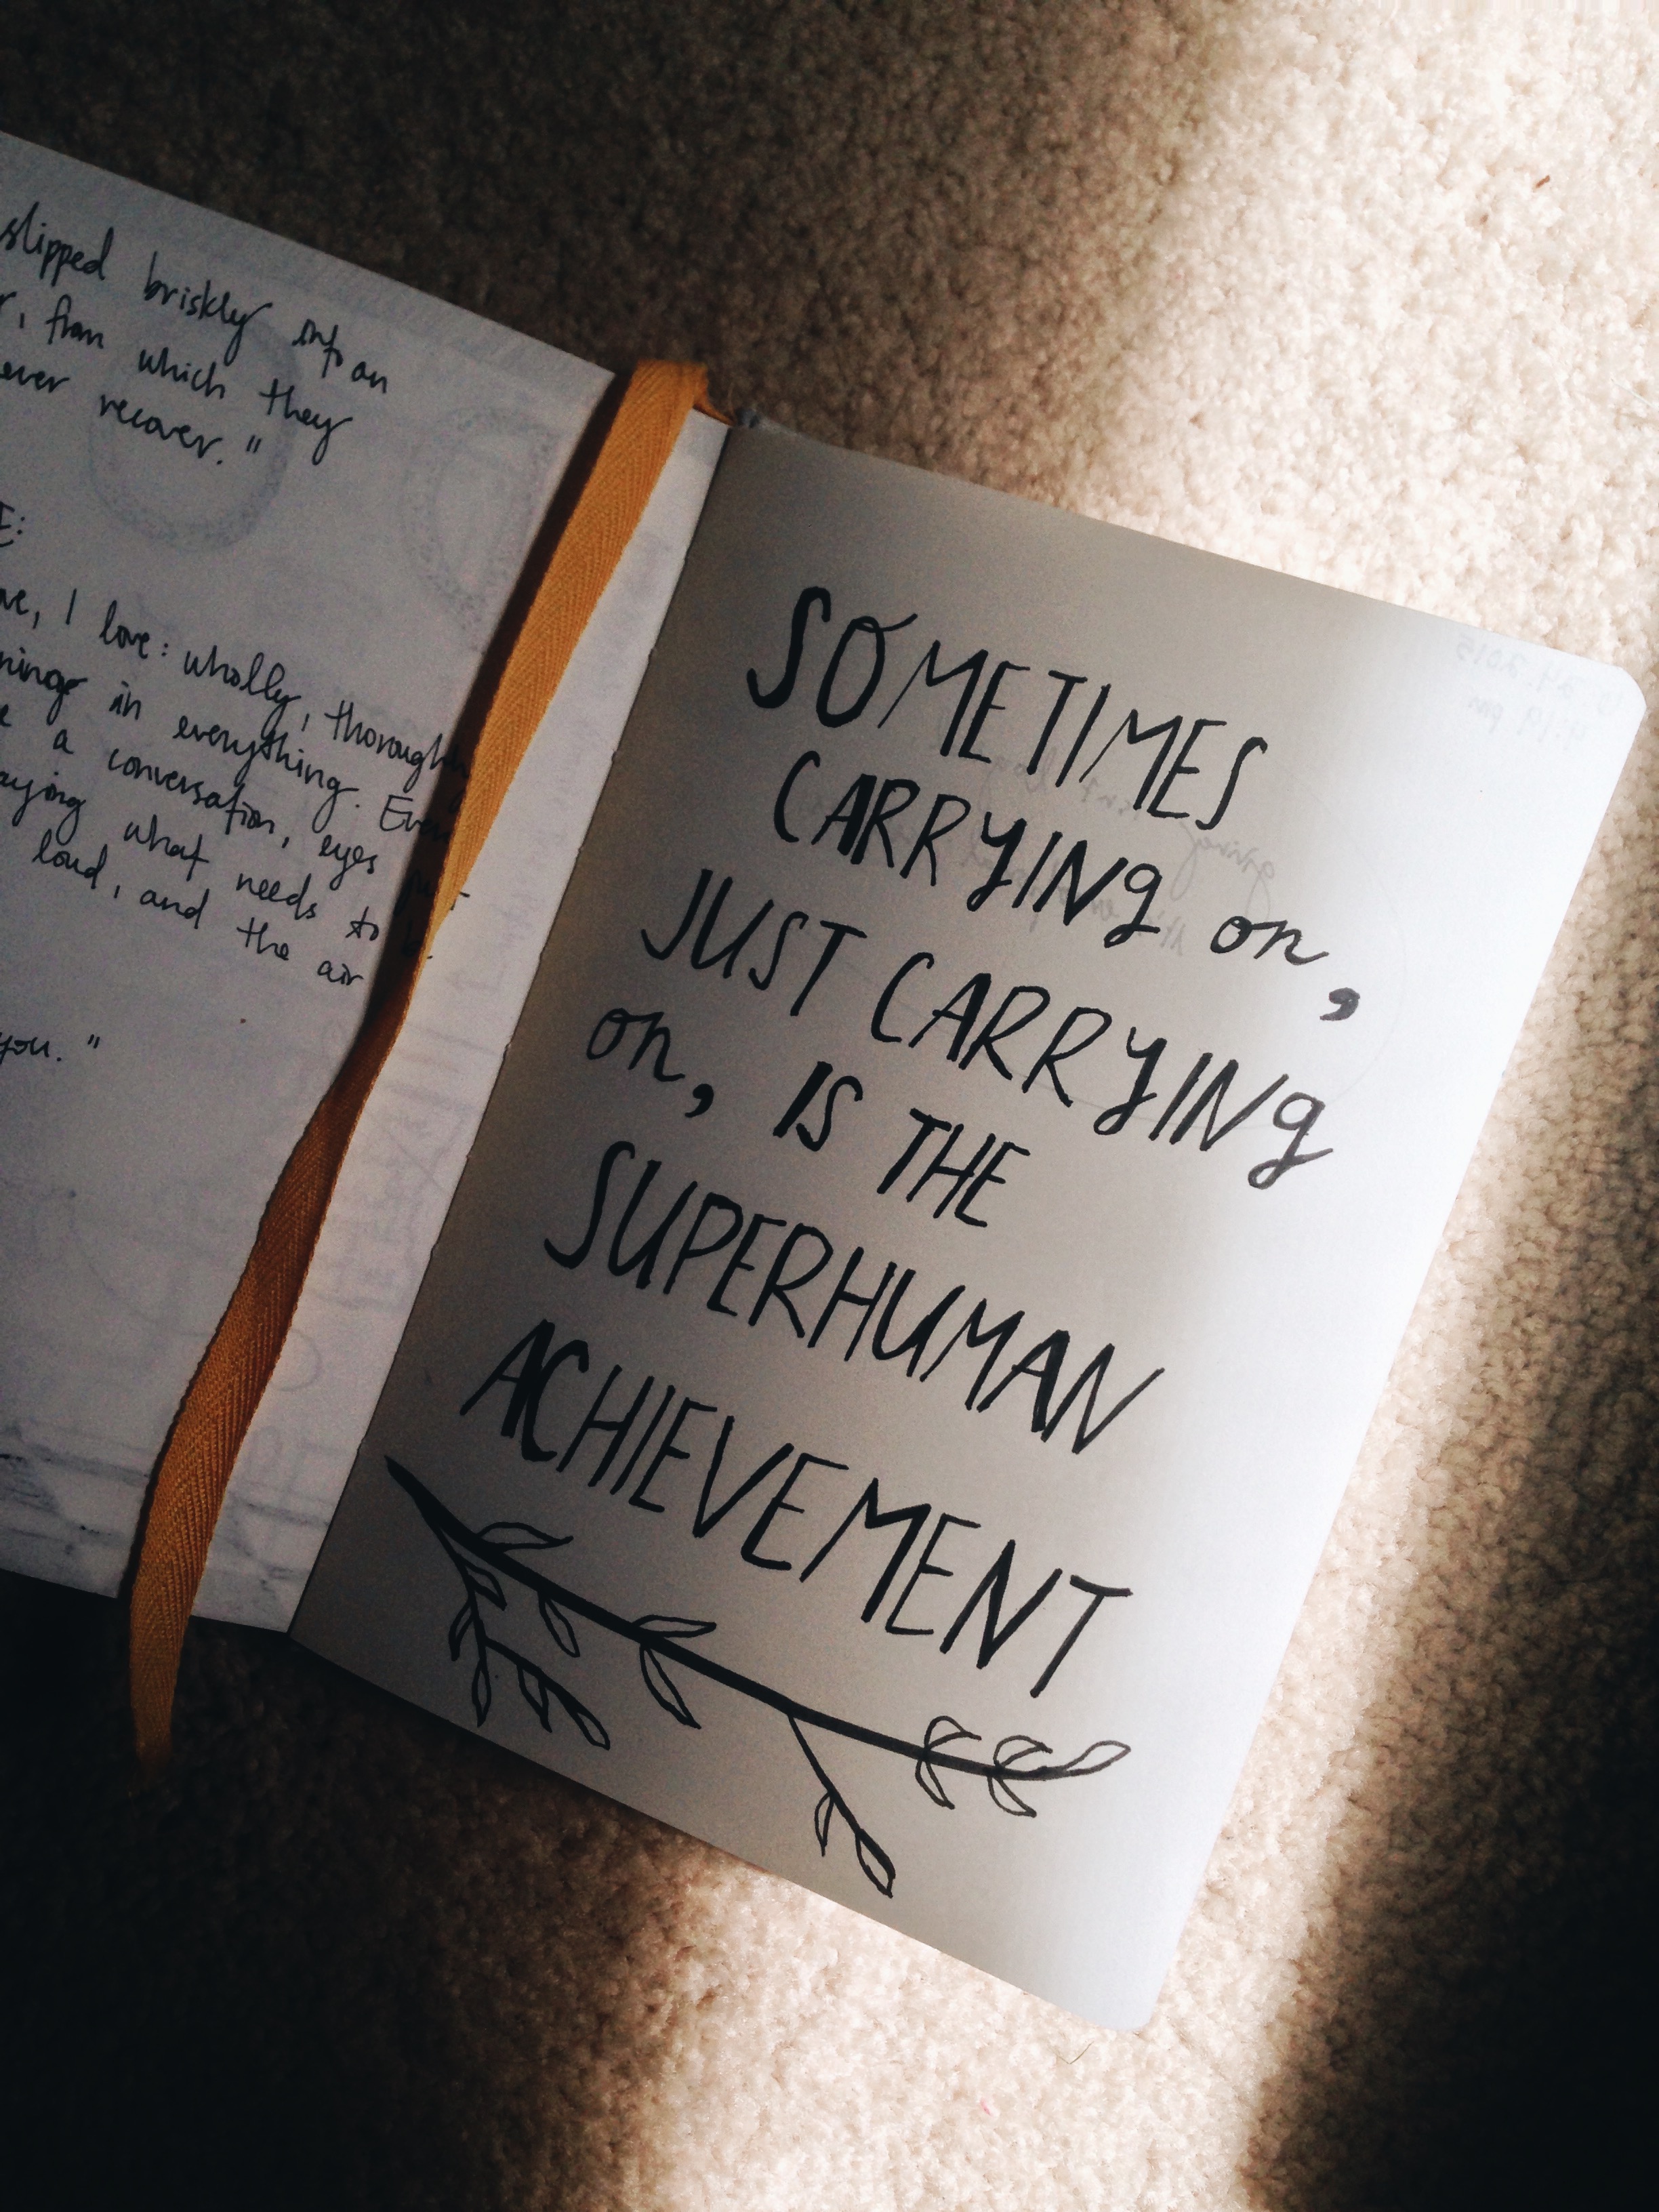 slipped briskly into an
, from which they
ever recover."
E:
, I love: wholly, thoroughly
in everything. Even
a conversation, eyes
what needs to be
loud, and the air
you."
SOMETIMES
CARRYINg on,
JUST CARRYINg
on, IS THE
SUPERHUMAN
ACHIEVEMENT